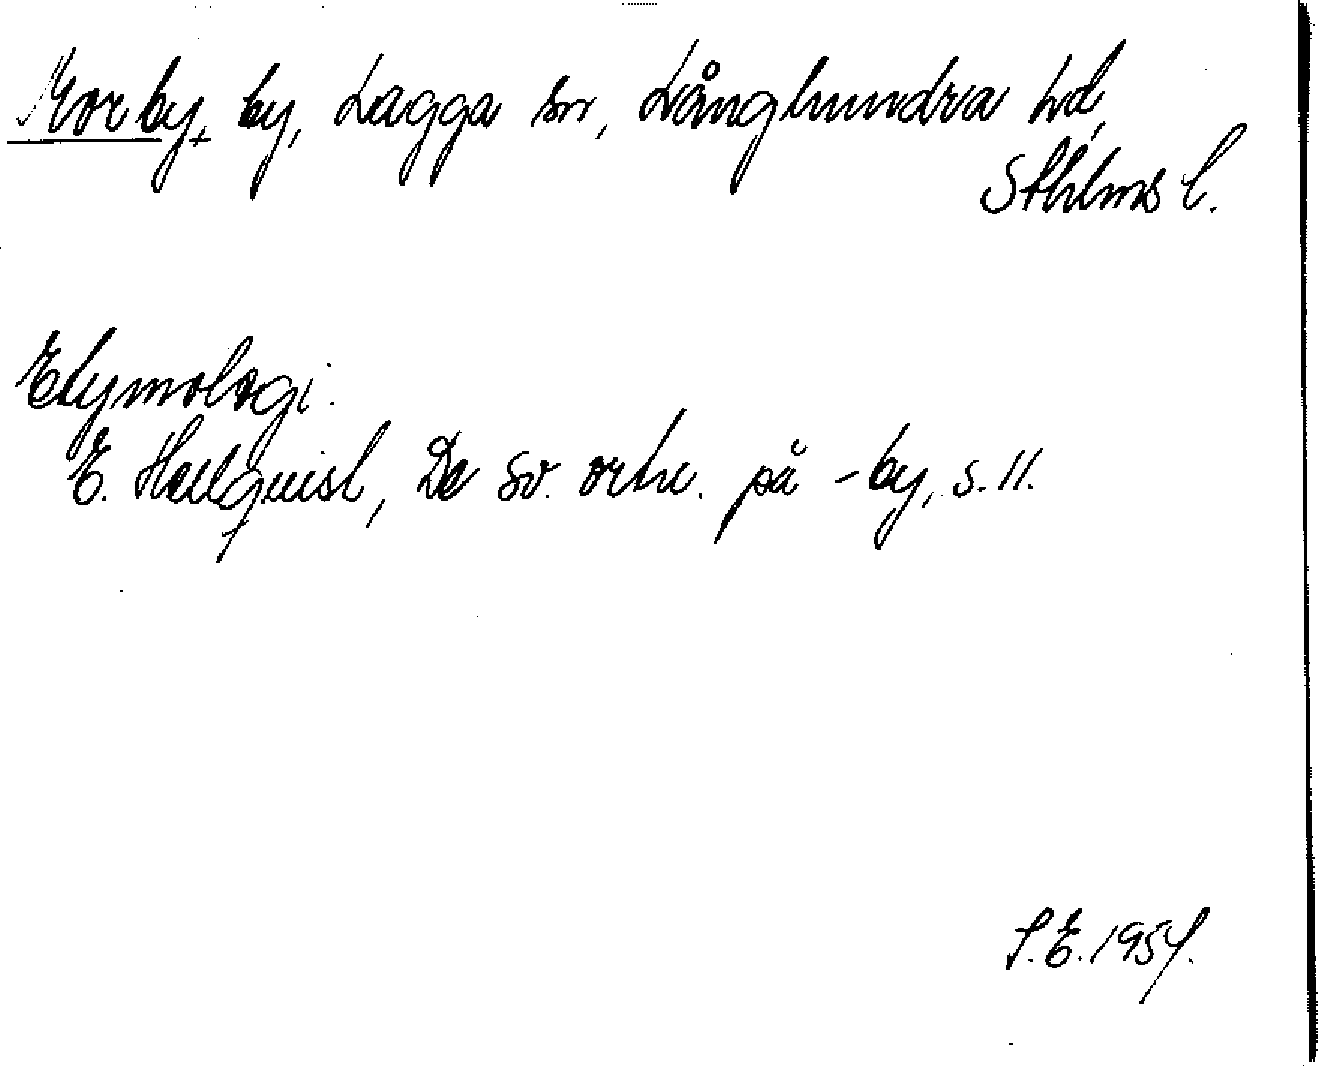 Morby, by, Lagga sn, Långhundra hd,
Sthlms l.
Etymologi.
E. Hellquist, De sv. ortn. på -by, s. 11.
S. E. 1954.